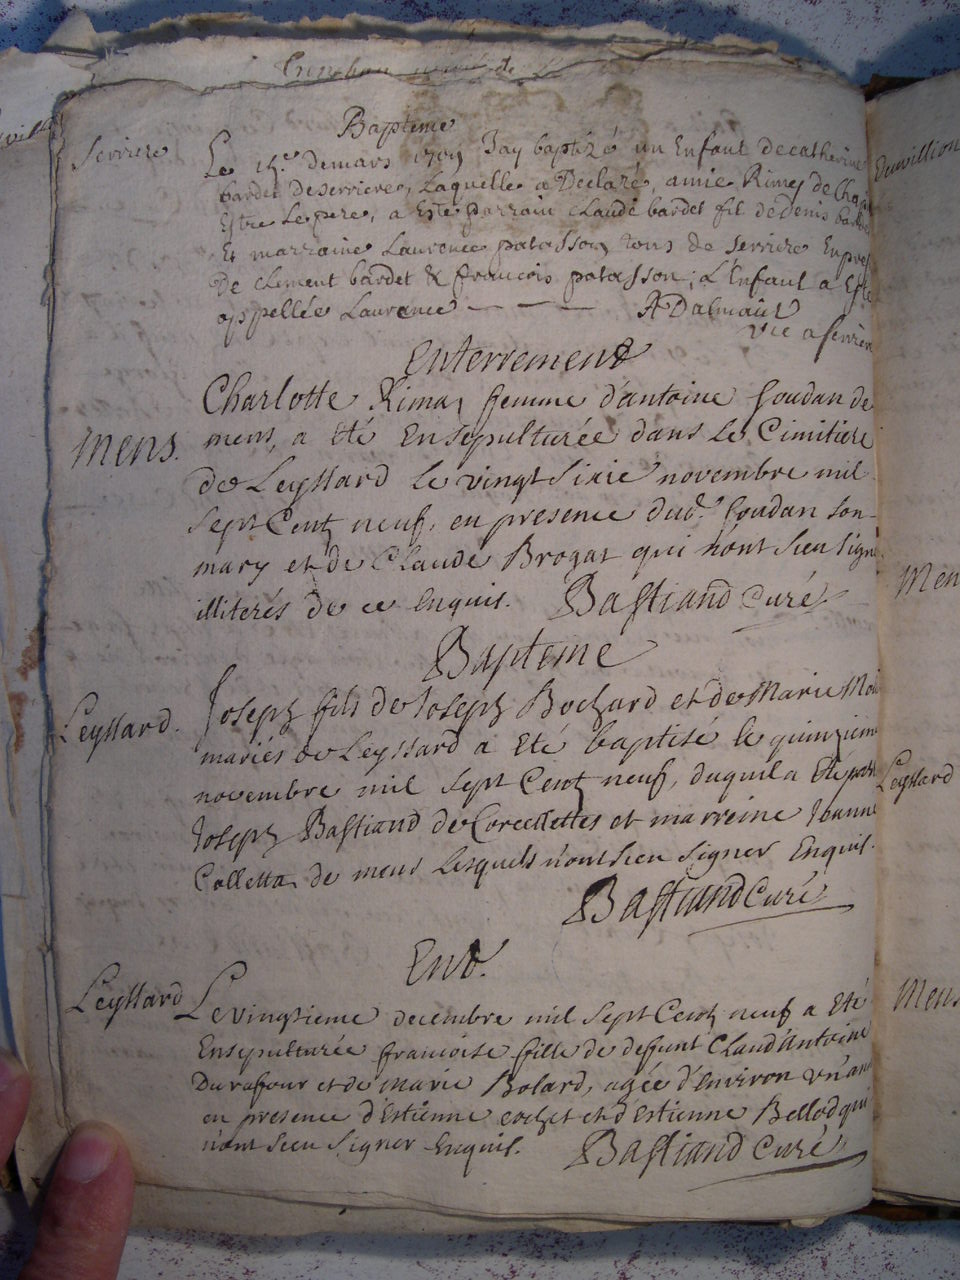 Bapteme
Serriere
Le 15e demars 1709 Jay baptizé un Enfant de catherine
bardet De serriere, Laquelle a Declaré, amie Rimey de
Estre Le pere, a Este parrain claude bardet fil de denis
Et marraine Laurence patasson tous de serriere En
De clement bardet & francois patasson; L'Enfant a Este
appellée Laurence A Dalmais
vic a serrier
Enterrement
Charlotte Rima femme d'antoine Goudan de
Mens.
mens, a été Ensepulturée dans Le Cimitiere
de Leyssard le vingt sixie novembre mil
sept Cent neuf, en presence dud. Goudan son
mary et de Claude Brogat qui nont sceu signe
illiterés de ce enquis. Bastiand Curé
Bapteme
Joseph fils de Joseph Bochard et de Marie
Leyssard.
mariés de Leyssard a eté baptisé le quinzieme
novembre mil sept Cent neuf, duquil a eté
Joseph Bastiand de Corcellettes et marreine Jeanne
Colletta de mens Lesquels n'ont sceu signer Enquis.
Bastiand Curé
Ent.
Leyssard
Le vingtieme decembre mil sept Cent neuf a Eté
Ensepulturée francoise fille de deffunt Claud'Antoine
Durafour et de Marie Bolard, agée d'Environ un an
en presence d'Estienne cochet et d'Estienne Bellod qui
n'ont sceu signer Enquis. Bastiand Curé
Leyssard
Mens